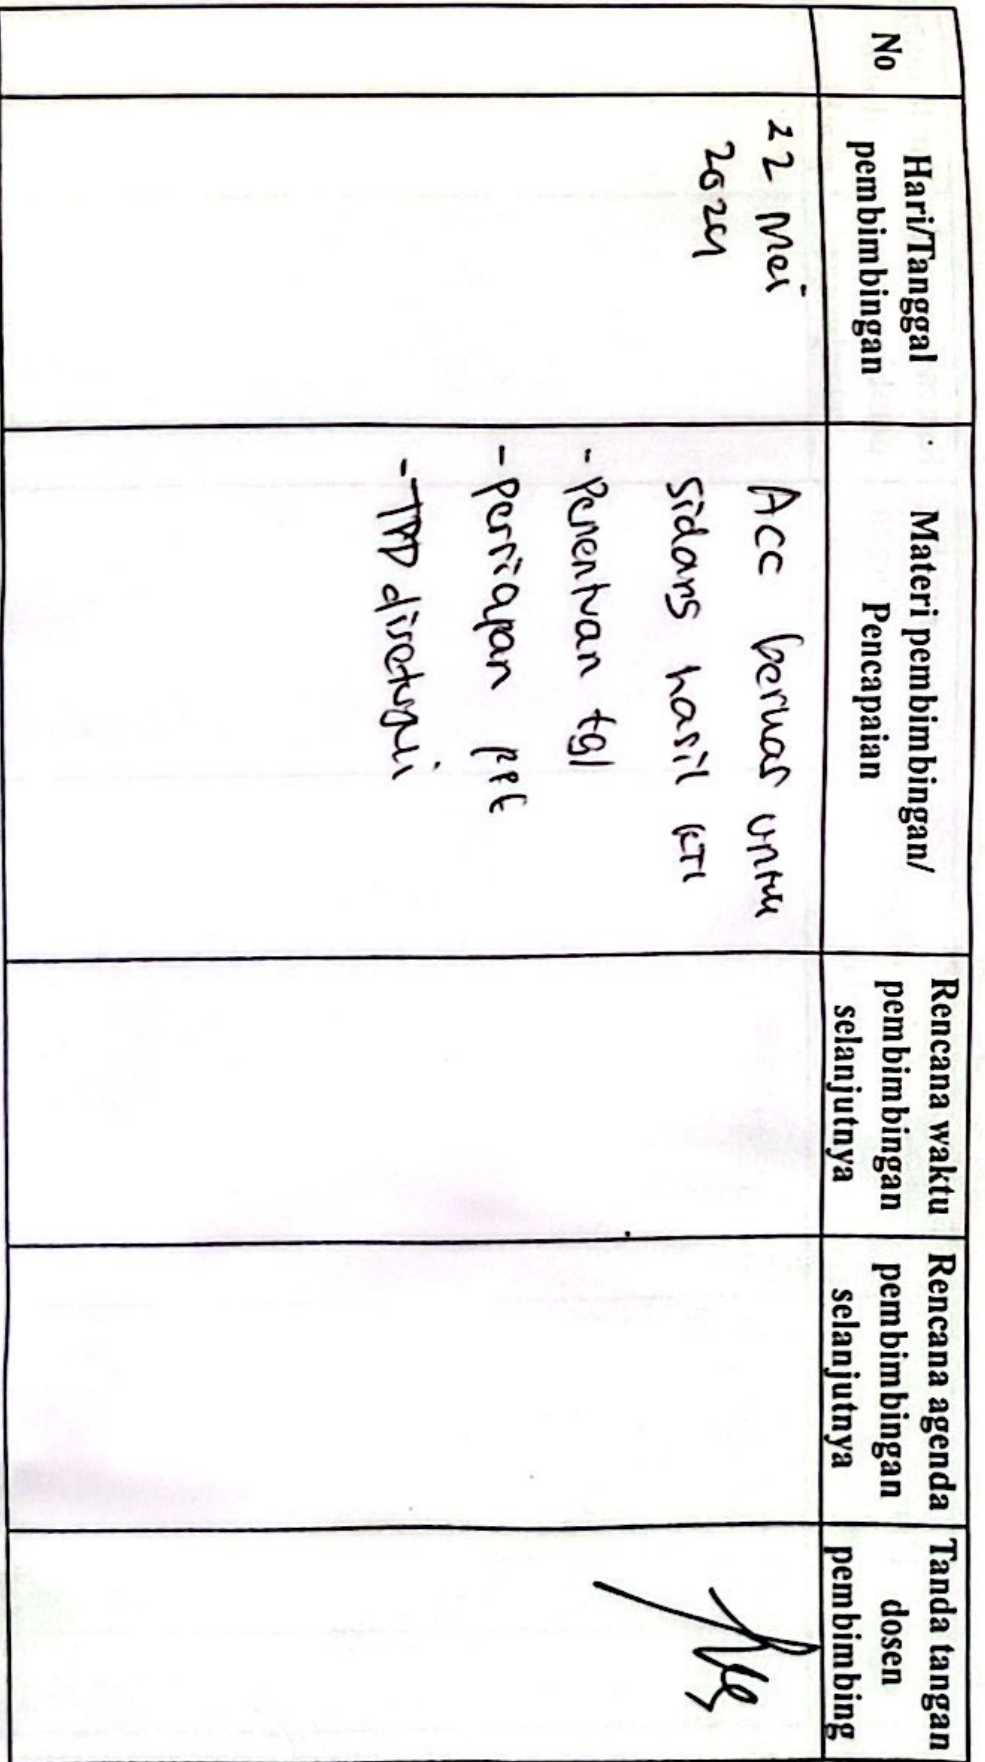 No
Hari/Tanggal
pembimbingan
Materi pembimbingan/
Pencapaian
Rencana waktu
pembimbingan
selanjutnya
Rencana agenda
pembimbingan
selanjutnya
Tanda tangan
dosen
pembimbing
22 Mei
2024
Acc berkas untuk
sidang hasil KTI
- Penentuan tgl
- Persiapan PPt
- TTD disetujui